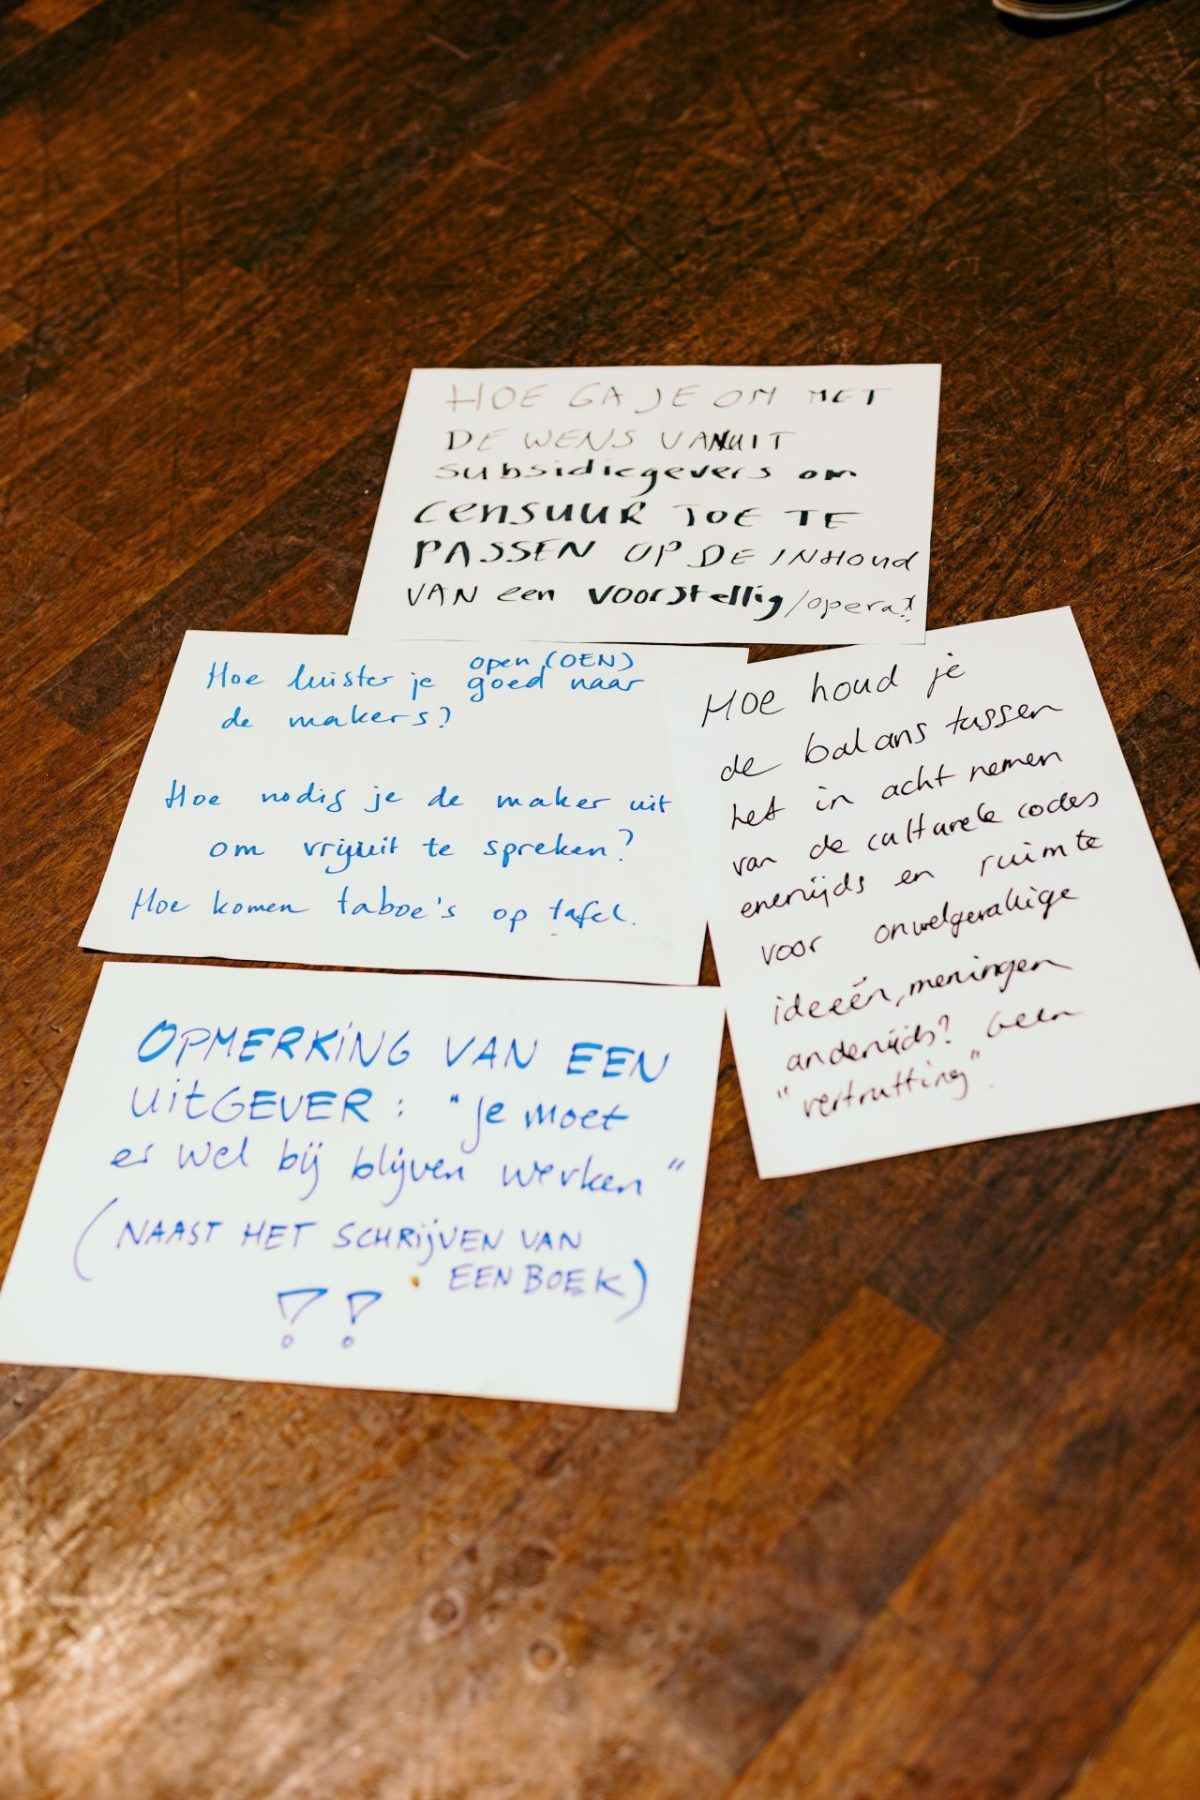 HOE GA JE OM MET
DE WENS VANUIT
subsidiegevers om
censuur TOE TE
PASSEN OP DE INHOUd
VAN een voorstellig/opera?
open (OEN)
Hoe luister je goed naar
de makers?
Hoe nodig je de maker uit
om vrijuit te spreken?
Hoe komen taboe's op tafel.
Hoe houd je
de balans tussen
het in acht nemen
van de culturele codes
enerzijds en ruimte
voor onwelgevallige
ideeën, meningen
anderzijds? Geen
"vertrutting".
OPMERKING VAN EEN
UITGEVER: "Je moet
er wel bij blijven werken"
(NAAST HET SCHRIJVEN VAN
EEN BOEK)
!!